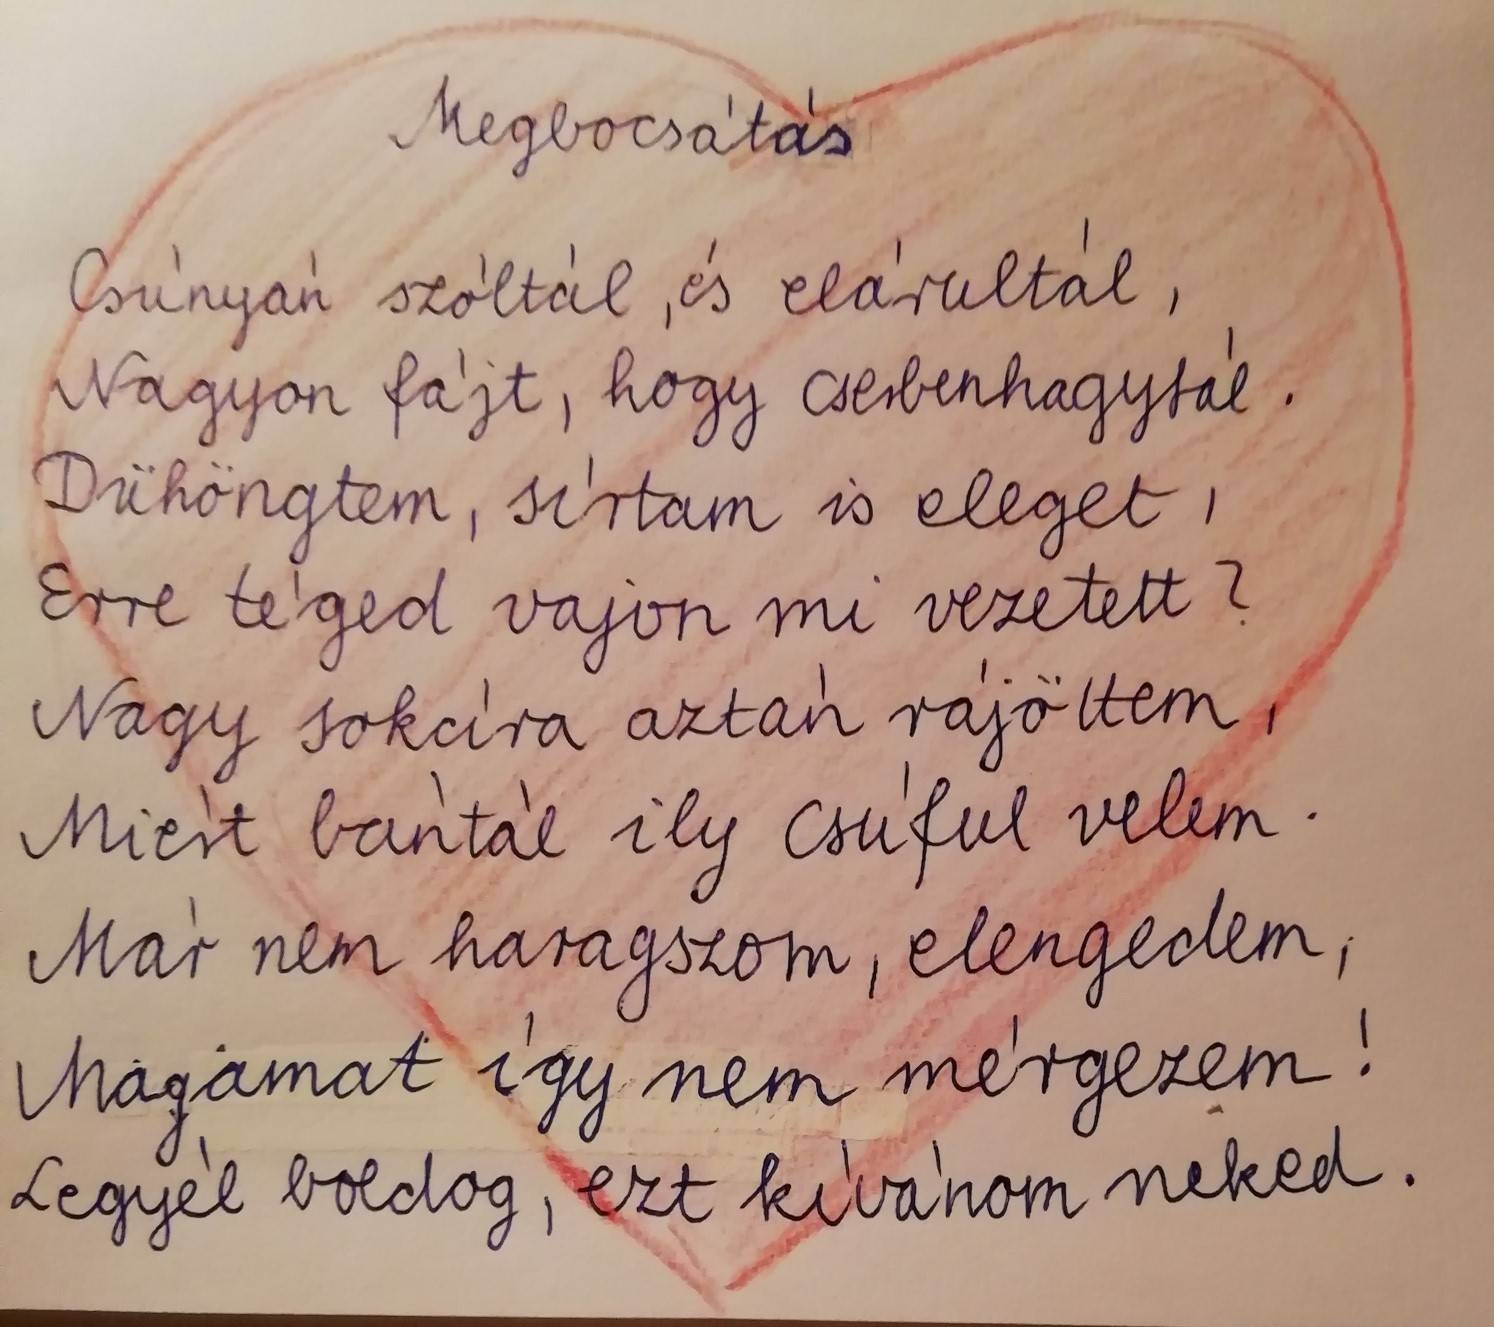 Megbocsátás
Csúnyán szóltál, és elárultál,
Nagyon fájt, hogy cserbenhagytál.
Dühöngtem, sírtam is eleget,
Erre téged vajon mi vezetett?
Nagy sokára aztán rájöttem,
Miért bántál ily csúful velem.
Már nem haragszom, elengedem,
Magamat így nem mérgezem!
Legyél boldog, ezt kívánom neked.